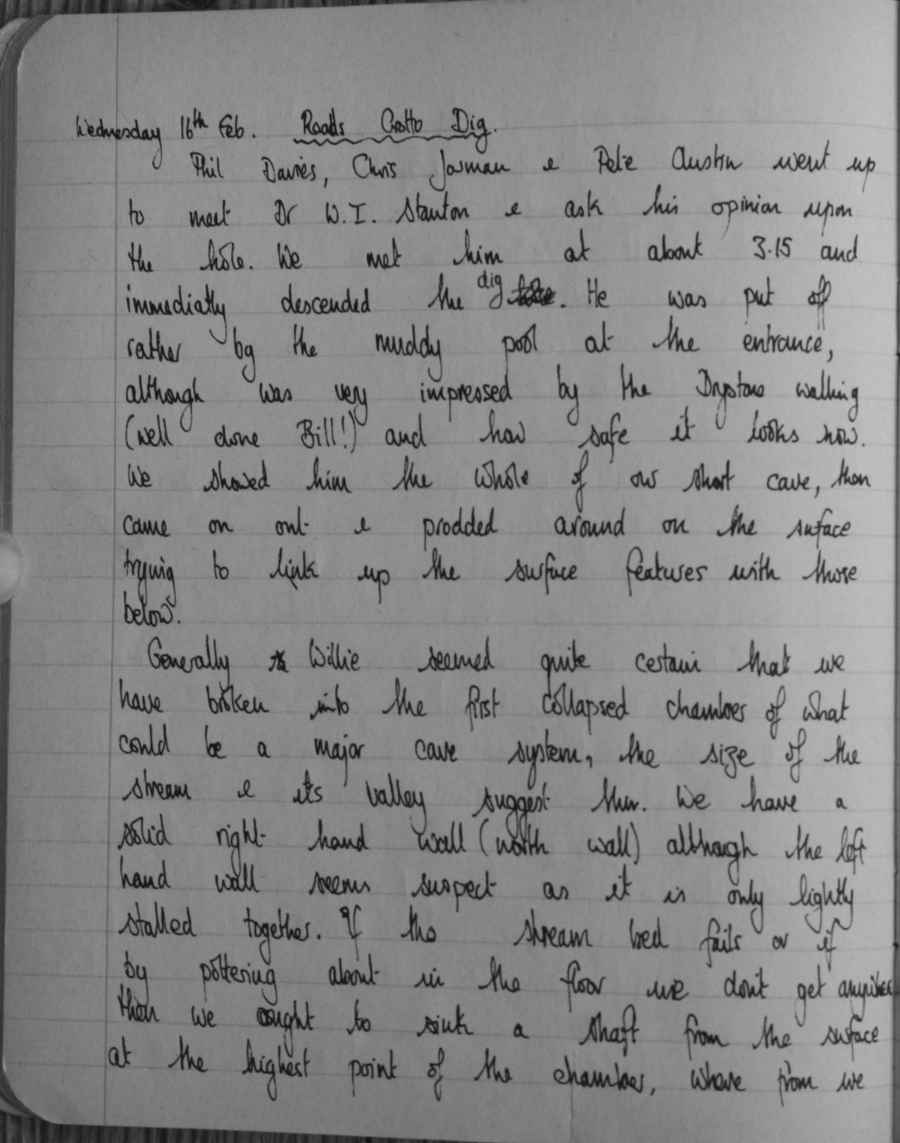 Wednesday 16th Feb. Roads Grotto Dig.
Phil Davies, Chris Jarman & Pete Austin went up
to meet Dr W.I. Stanton & ask his opinion upon
the hole. We met him at about 3.15 and
immediatly descended the dig. He was put off
rather by the muddy pool at the entrance,
although was very impressed by the Drystone walling
(well done Bill!) and how safe it looks now.
We showed him the whole of our short cave, then
came on out & prodded around on the surface
trying to link up the surface features with those
below.
Generally Willie seemed quite certain that we
have broken into the first collapsed chamber of what
could be a major cave system, the size of the
stream & its valley suggest this. We have a
solid right hand wall (north wall) although the left
hand wall seems suspect as it is only lightly
stalled together. If the stream bed fails or if
by pottering about in the floor we don't get anywhere
then we ought to sink a shaft from the surface
at the highest point of the chamber, where from we